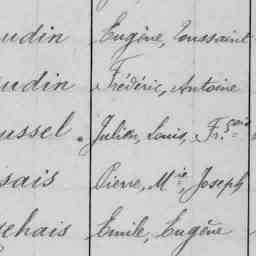 udin Eugène, Toussaint
udin Frédéric, Antoine
ussel Julien, Louis, Fr.çois
sais Pierre, M.ie, Joseph
chais Emile, Eugène